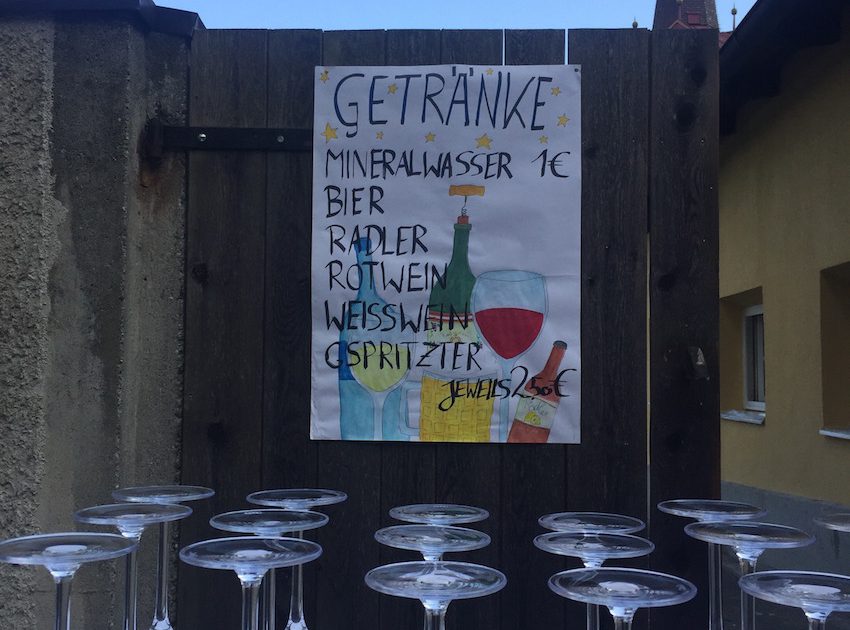 GETRÄNKE
MINERALWASSER 1€
BIER
RADLER
ROTWEIN
WEISSWEIN
GSPRITZTER
JEWEILS 2,50€